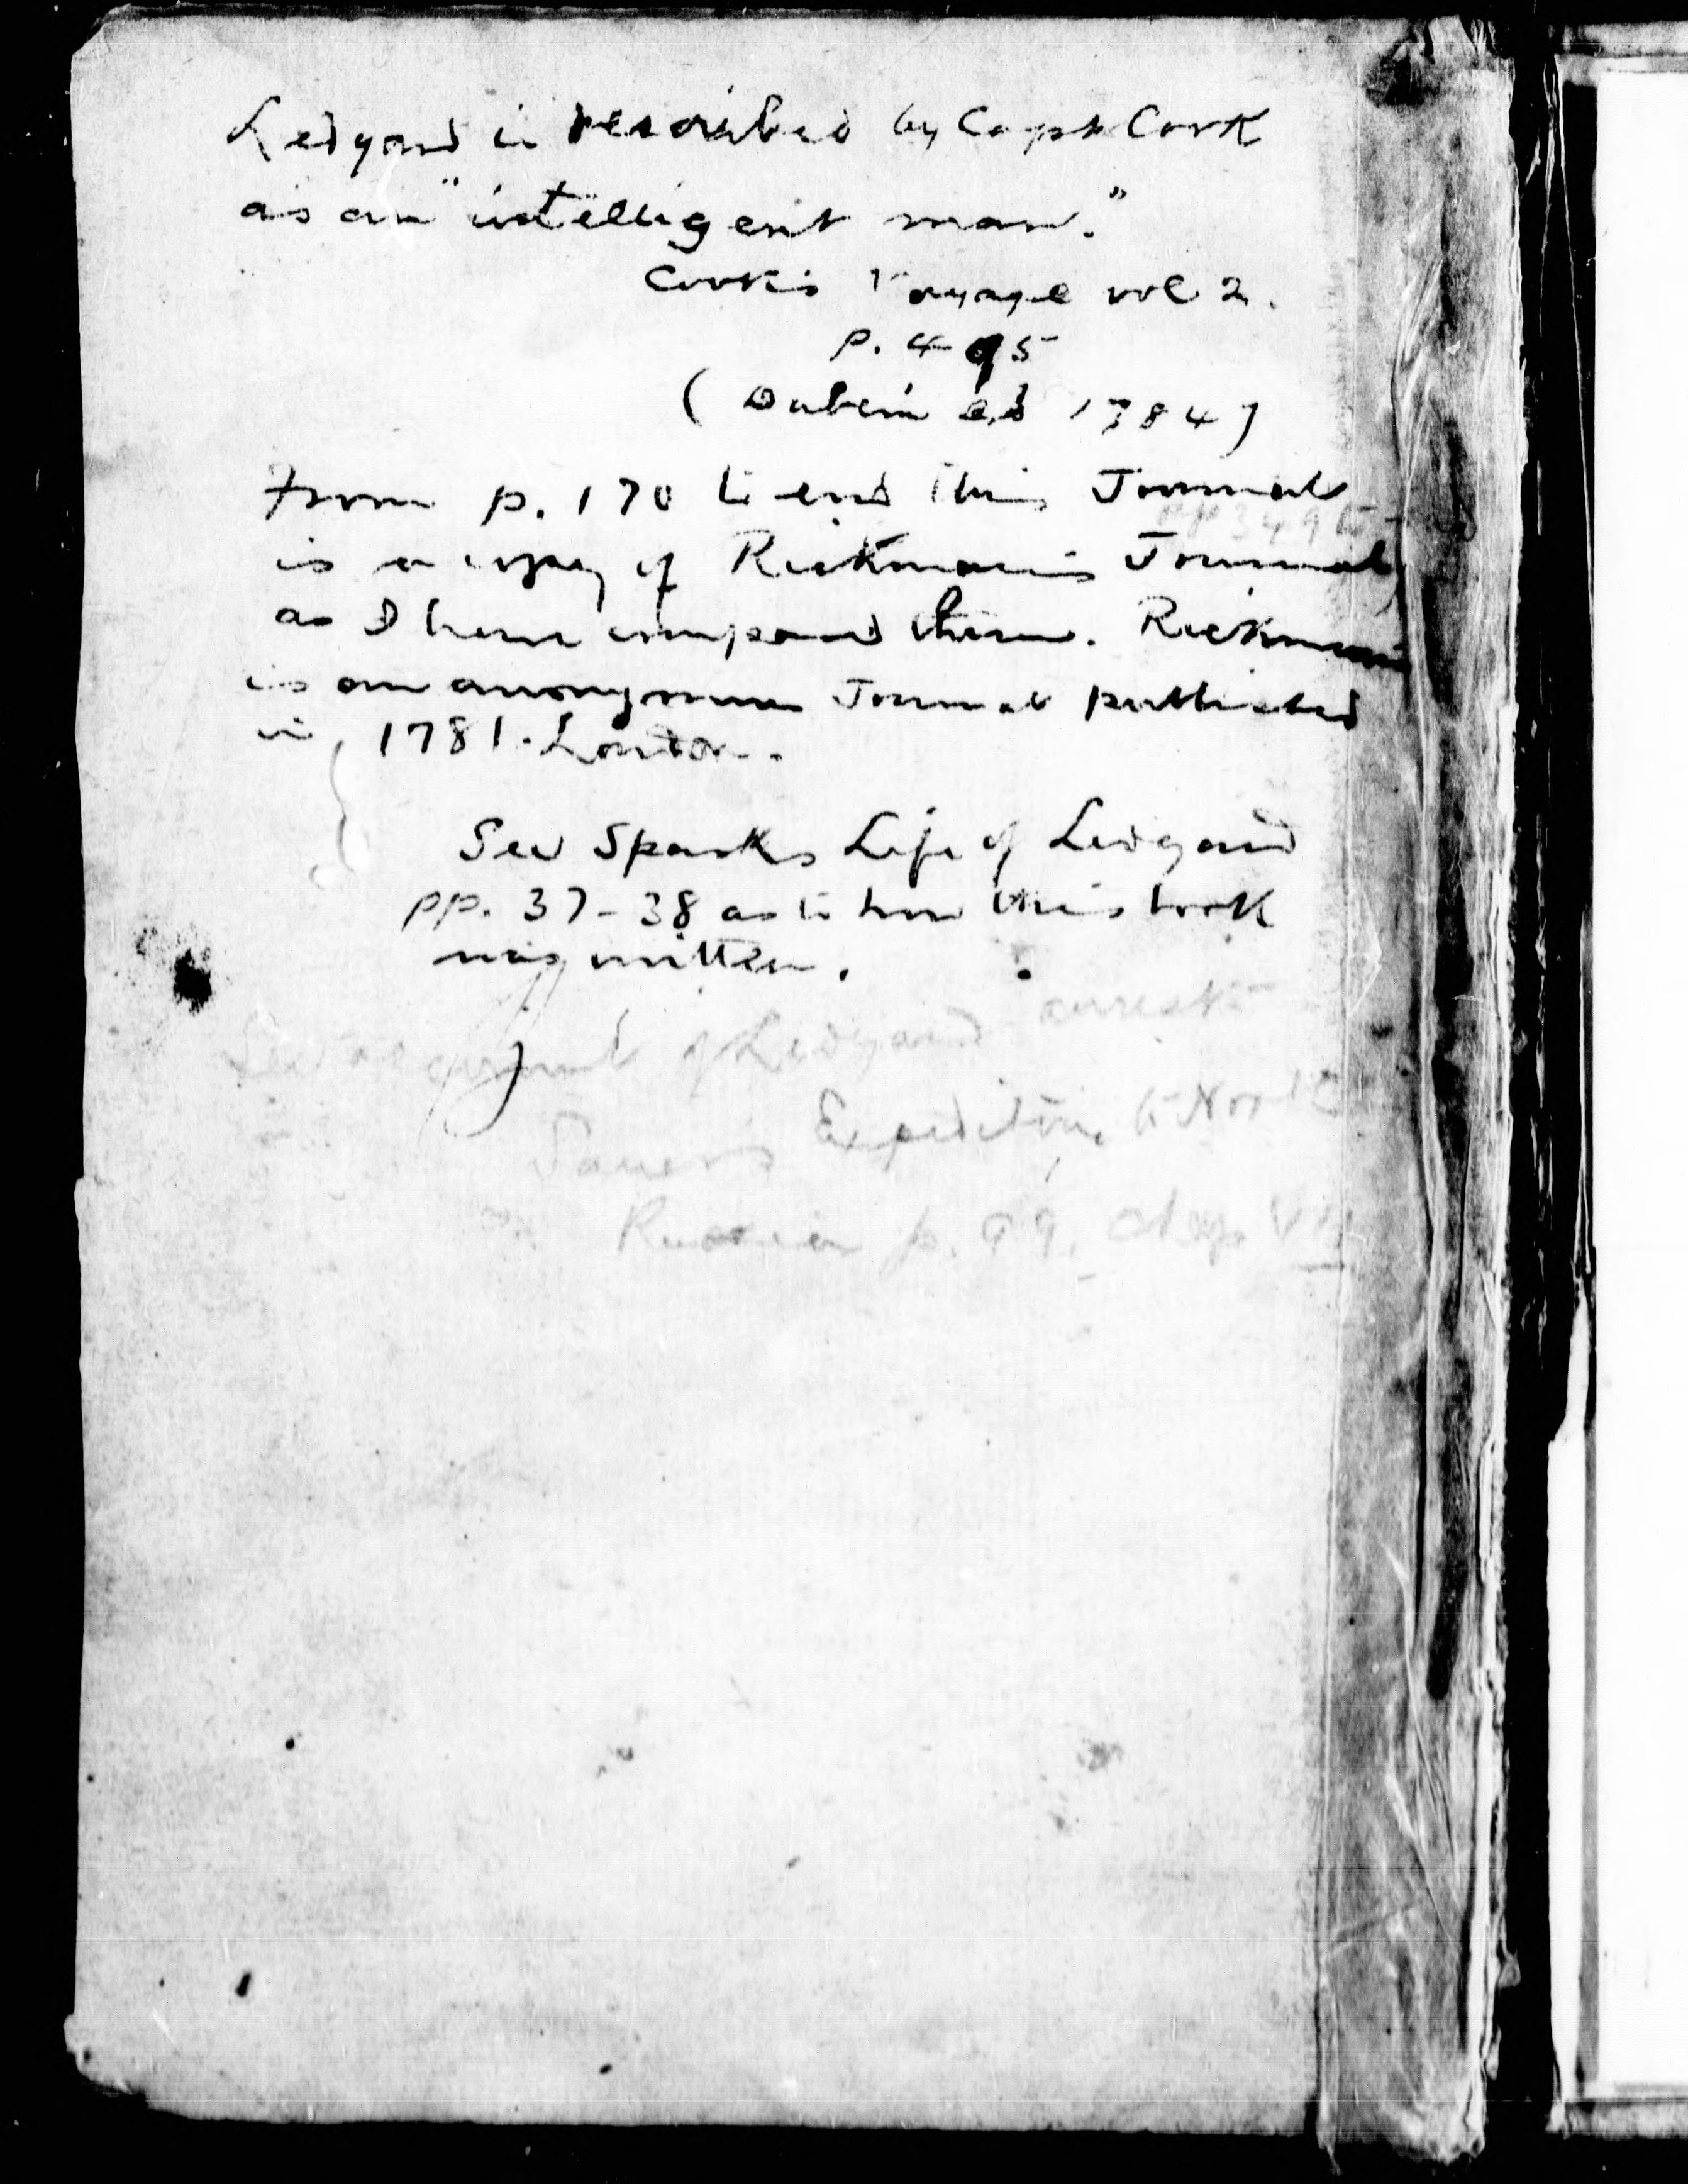 Ledyard is described by Capt Cook
as an "intelligent man."
Cook's Voyage vol 2.
p. 495
(Dublin ed 1784)
From p. 170 to end this Journal
pp 349 to
is a copy of Rickman's Journal
as I have compared them. Rickman
is an anonymous Journal published
in 1781. London.
See Sparks Life of Ledyard
pp. 37-38 as to how this book
was written.
See account of Ledyard arrest
Sauer's Expedition to North
Russia p. 99, chap VII